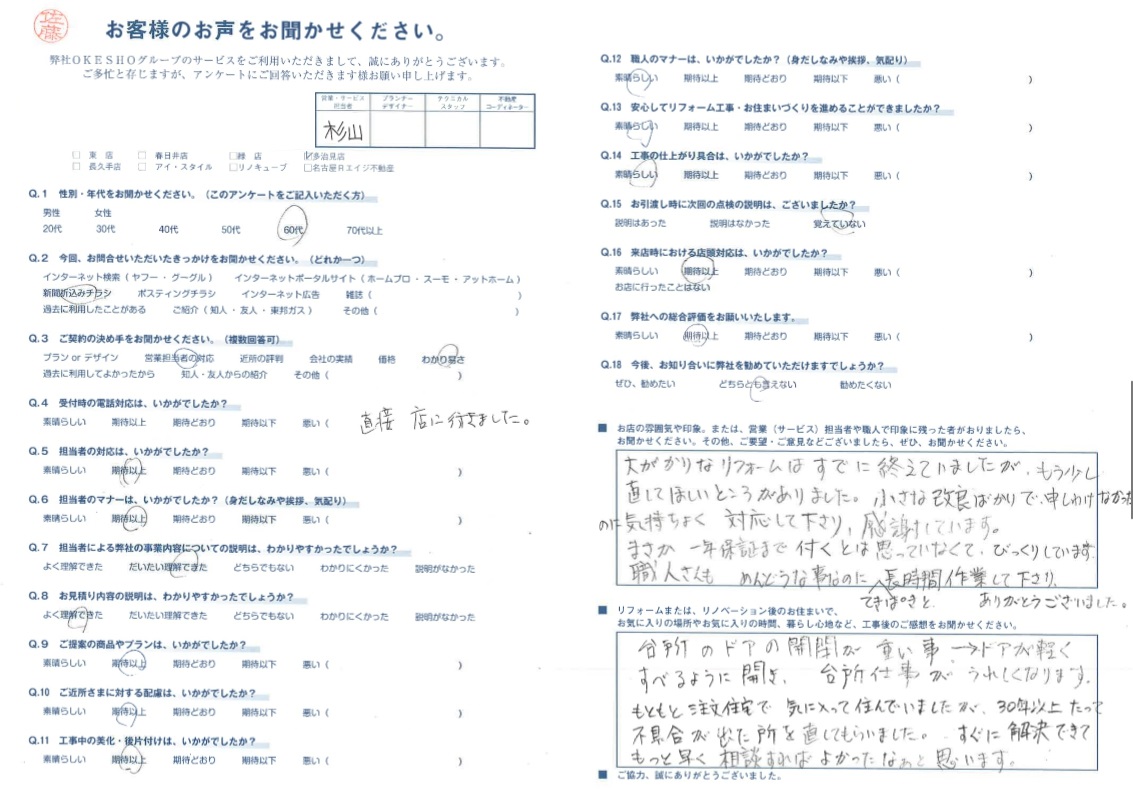 佐藤
お客様のお声をお聞かせください。
弊社OKESHOグループのサービスをご利用いただきまして、誠にありがとうございます。
ご多忙と存じますが、アンケートにご回答いただきます様お願い申し上げます。
営業・サービス担当者
プランナーデザイナー
テクニカルスタッフ
不動産コーディネーター
杉山
□ 東 店 □ 春日井店 □緑 店 ☑多治見店
□ 長久手店 □ アイ・スタイル □リノキューブ □名古屋Rエイジ不動産
Q.1 性別・年代をお聞かせください。（このアンケートをご記入いただく方）
男性 女性
20代 30代 40代 50代 60代 70代以上
Q.2 今回、お問合せいただいたきっかけをお聞かせください。（どれか一つ）
インターネット検索（ ヤフー ・ グーグル ） インターネットポータルサイト（ ホームプロ ・ スーモ ・ アットホーム ）
新聞折込みチラシ ポスティングチラシ インターネット広告 雑誌（ ）
過去に利用したことがある ご紹介（ 知人 ・ 友人 ・ 東邦ガス ） その他（ ）
Q.3 ご契約の決め手をお聞かせください。（複数回答可）
プラン or デザイン 営業担当者の対応 近所の評判 会社の実績 価格 わかり易さ
過去に利用してよかったから 知人・友人からの紹介 その他（ ）
Q.4 受付時の電話対応は、いかがでしたか？
素晴らしい 期待以上 期待どおり 期待以下 悪い（ 直接 店に行きました。
Q.5 担当者の対応は、いかがでしたか？
素晴らしい 期待以上 期待どおり 期待以下 悪い（ ）
Q.6 担当者のマナーは、いかがでしたか？（身だしなみや挨拶、気配り）
素晴らしい 期待以上 期待どおり 期待以下 悪い（ ）
Q.7 担当者による弊社の事業内容についての説明は、わかりやすかったでしょうか？
よく理解できた だいたい理解できた どちらでもない わかりにくかった 説明がなかった
Q.8 お見積り内容の説明は、わかりやすかったでしょうか？
よく理解できた だいたい理解できた どちらでもない わかりにくかった 説明がなかった
Q.9 ご提案の商品やプランは、いかがでしたか？
素晴らしい 期待以上 期待どおり 期待以下 悪い（ ）
Q.10 ご近所さまに対する配慮は、いかがでしたか？
素晴らしい 期待以上 期待どおり 期待以下 悪い（ ）
Q.11 工事中の美化・後片付けは、いかがでしたか？
素晴らしい 期待以上 期待どおり 期待以下 悪い（ ）
Q.12 職人のマナーは、いかがでしたか？（身だしなみや挨拶、気配り）
素晴らしい 期待以上 期待どおり 期待以下 悪い（ ）
Q.13 安心してリフォーム工事・お住まいづくりを進めることができましたか？
素晴らしい 期待以上 期待どおり 期待以下 悪い（ ）
Q.14 工事の仕上がり具合は、いかがでしたか？
素晴らしい 期待以上 期待どおり 期待以下 悪い（ ）
Q.15 お引渡し時に次回の点検の説明は、ございましたか？
説明はあった 説明はなかった 覚えていない
Q.16 来店時における店頭対応は、いかがでしたか？
素晴らしい 期待以上 期待どおり 期待以下 悪い（ ）
お店に行ったことはない
Q.17 弊社への総合評価をお願いいたします。
素晴らしい 期待以上 期待どおり 期待以下 悪い（ ）
Q.18 今後、お知り合いに弊社を勧めていただけますでしょうか？
ぜひ、勧めたい どちらとも言えない 勧めたくない
■ お店の雰囲気や印象。または、営業（サービス）担当者や職人で印象に残った者がおりましたら、
お聞かせください。その他、ご要望・ご意見などございましたら、ぜひ、お聞かせください。
大がかりなリフォームはすでに終えていましたが、もう少し
直してほしいところがありました。小さな改良ばかりで、申しわけなかった
のに気持ちよく 対応して下さり、感謝しています。
まさか 一年保証まで 付くとは思っていなくて、びっくりしています。
職人さんも めんどうな事なのに 長時間作業して下さり、
てきぱきと、 ありがとうございました。
■ リフォームまたは、リノベーション後のお住まいで、
お気に入りの場所やお気に入りの時間、暮らし心地など、工事後のご感想をお聞かせください。
台所のドアの開閉が 重い事 →ドアが軽く
すべるように開き、 台所仕事が うれしくなります。
もともと 注文住宅で 気に入って住んでいましたが、30年以上たって
不具合が出た所を直してもらいました。すぐに解決できて
もっと早く 相談すればよかったなぁと 思います。
■ ご協力、誠にありがとうございました。